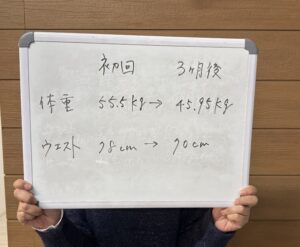 初回 3ヶ月後
体重 55.5kg → 45.95kg
ウエスト 78cm → 70cm